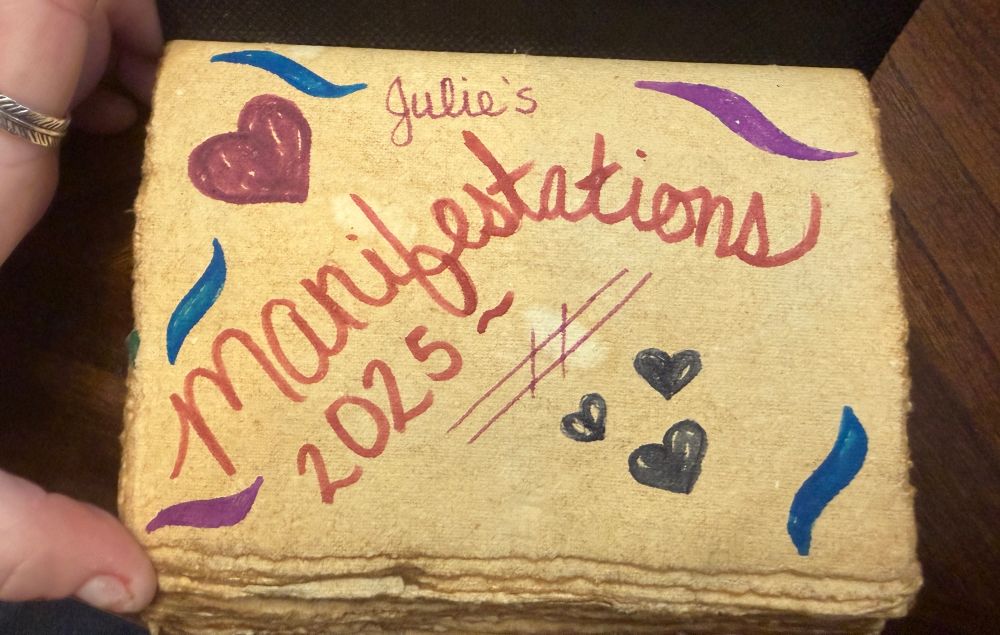 Julie's
Manifestations
2025~